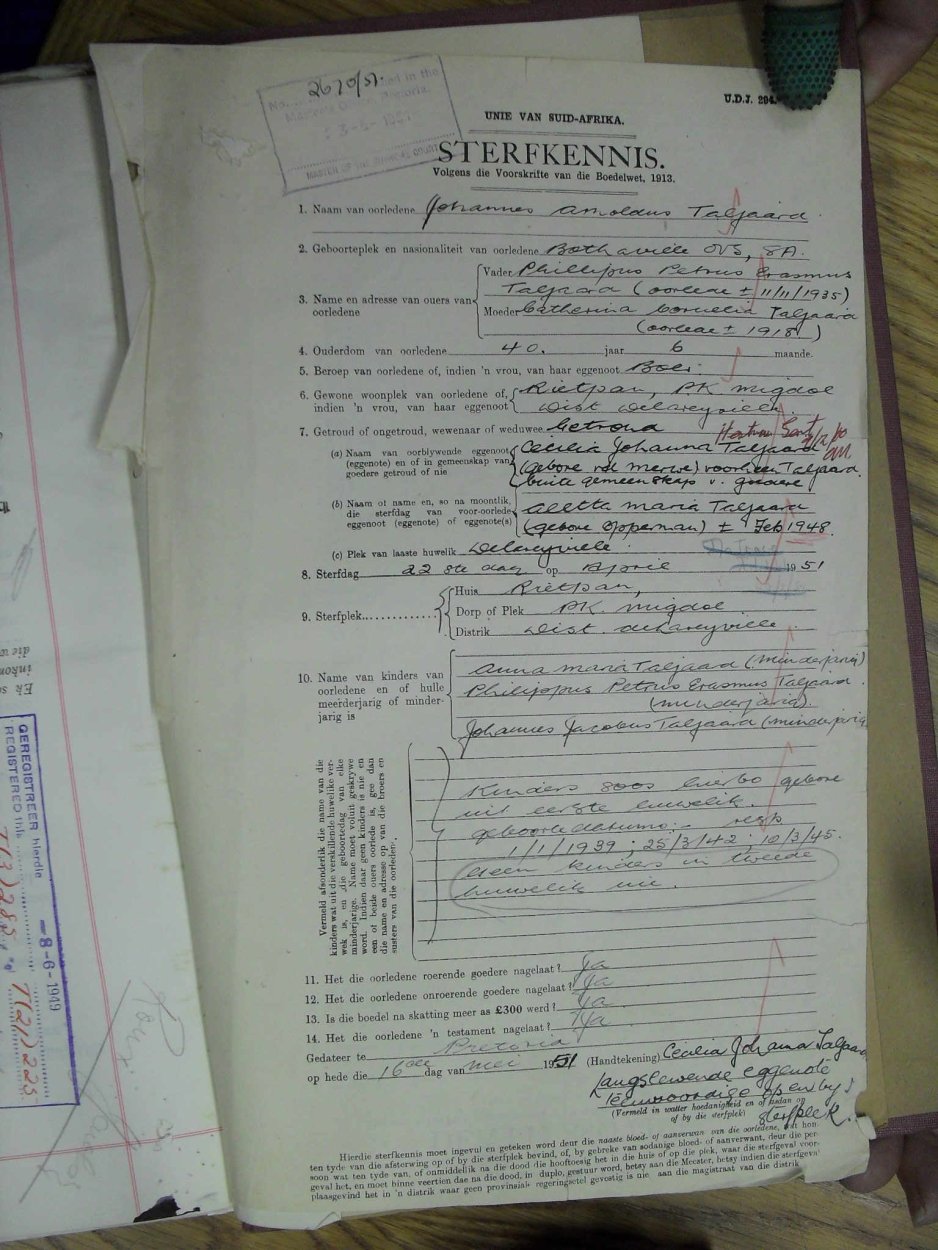 2670/51.
No. ... ed in the
Master's Office, Pretoria.
MASTER OF THE SUPREME COURT
U.D.J. 294.
UNIE VAN SUID-AFRIKA.
STERFKENNIS.
Volgens die Voorskrifte van die Boedelwet, 1913.
1. Naam van oorledene Johannes Arnoldus Taljaard
2. Geboorteplek en nasionaliteit van oorledene Bothaville OVS, SA.
3. Name en adresse van ouers van oorledene
Vader Phillippus Petrus Erasmus
Taljaard (oorlede ± 11/11/1935)
Moeder Catherina Cornelia Taljaard
(oorlede ± 1918)
4. Ouderdom van oorledene 40. jaar 6 maande.
5. Beroep van oorledene of, indien 'n vrou, van haar eggenoot Boer.
6. Gewone woonplek van oorledene of, Rietpan, PK Migdol
indien 'n vrou, van haar eggenoot Dist Delareyville.
7. Getroud of ongetroud, wewenaar of weduwee Getroud
(a) Naam van oorblywende eggenoot Cecilia Johanna Taljaard
(eggenote) en of in gemeenskap van (gebore vd Merwe) voorheen Taljaard
goedere getroud of nie buite gemeenskap v. goedere
(b) Naam of name en, so na moontlik, Aletta Maria Taljaard
die sterfdag van voor-oorlede
eggenoot (eggenote) of eggenote(s) (gebore Opperman) ± Feb 1948.
(c) Plek van laaste huwelik Delareyville.
8. Sterfdag 22ste dag op April 1951
9. Sterfplek
Huis Rietpan,
Dorp of Plek PK. Migdol
Distrik Dist. Delareyville.
10. Name van kinders van Anna Maria Taljaard (minderjarig)
oorledene en of hulle Philippus Petrus Erasmus Taljaard
meerderjarig of minder- (minderjarig).
jarig is Johannes Jacobus Taljaard (minderjarig
Vermeld afsonderlik die name van die
kinders wat uit die verskillende huwelike ver-
wek is, en die geboortedag van elke
minderjarige. Name moet voluit geskrywe
word. Indien daar geen kinders is nie en
een of beide ouers oorlede is, gee dan
die name en adresse op van die broers en
susters van die oorledene.
Kinders soos hierbo gebore
uit eerste huwelik.
geboortedatums:- resp
1/1/1939; 25/3/42; 10/3/45.
Geen kinders in tweede
huwelik nie.
11. Het die oorledene roerende goedere nagelaat? Ja
12. Het die oorledene onroerende goedere nagelaat? Ja
13. Is die boedel na skatting meer as £300 werd? Ja
14. Het die oorledene 'n testament nagelaat? Ja
Gedateer te Pretoria
op hede die 16de dag van Mei 1951 (Handtekening) Cecilia Johanna Taljaard
Langslewende eggenote
teenwoordige op en by
(Vermeld in watter hoedanigheid en of
of by die sterfplek) sterfplek.
Hierdie sterfkennis moet ingevul en geteken word deur die naaste bloed- of aanverwan van die oorledene,
ten tyde van die afsterwing op of by die sterfplek bevind, of, by gebreke van sodanige bloed- of aanverwant, deur die per-
soon wat ten tyde van, of onmiddellik na die dood die hooftoesig het in die huis of op die plek, waar die sterfgeval voor-
geval het, en moet binne veertien dae na die dood, in duplo, gestuur word, hetsy aan die Meester, hetsy indien die sterfgeval
plaasgevind het in 'n distrik waar geen provinsiale regeringsetel gevestig is nie aan die magistraat van die distrik
GEREGISTREER hierdie
REGISTERED this
-8-6-1949